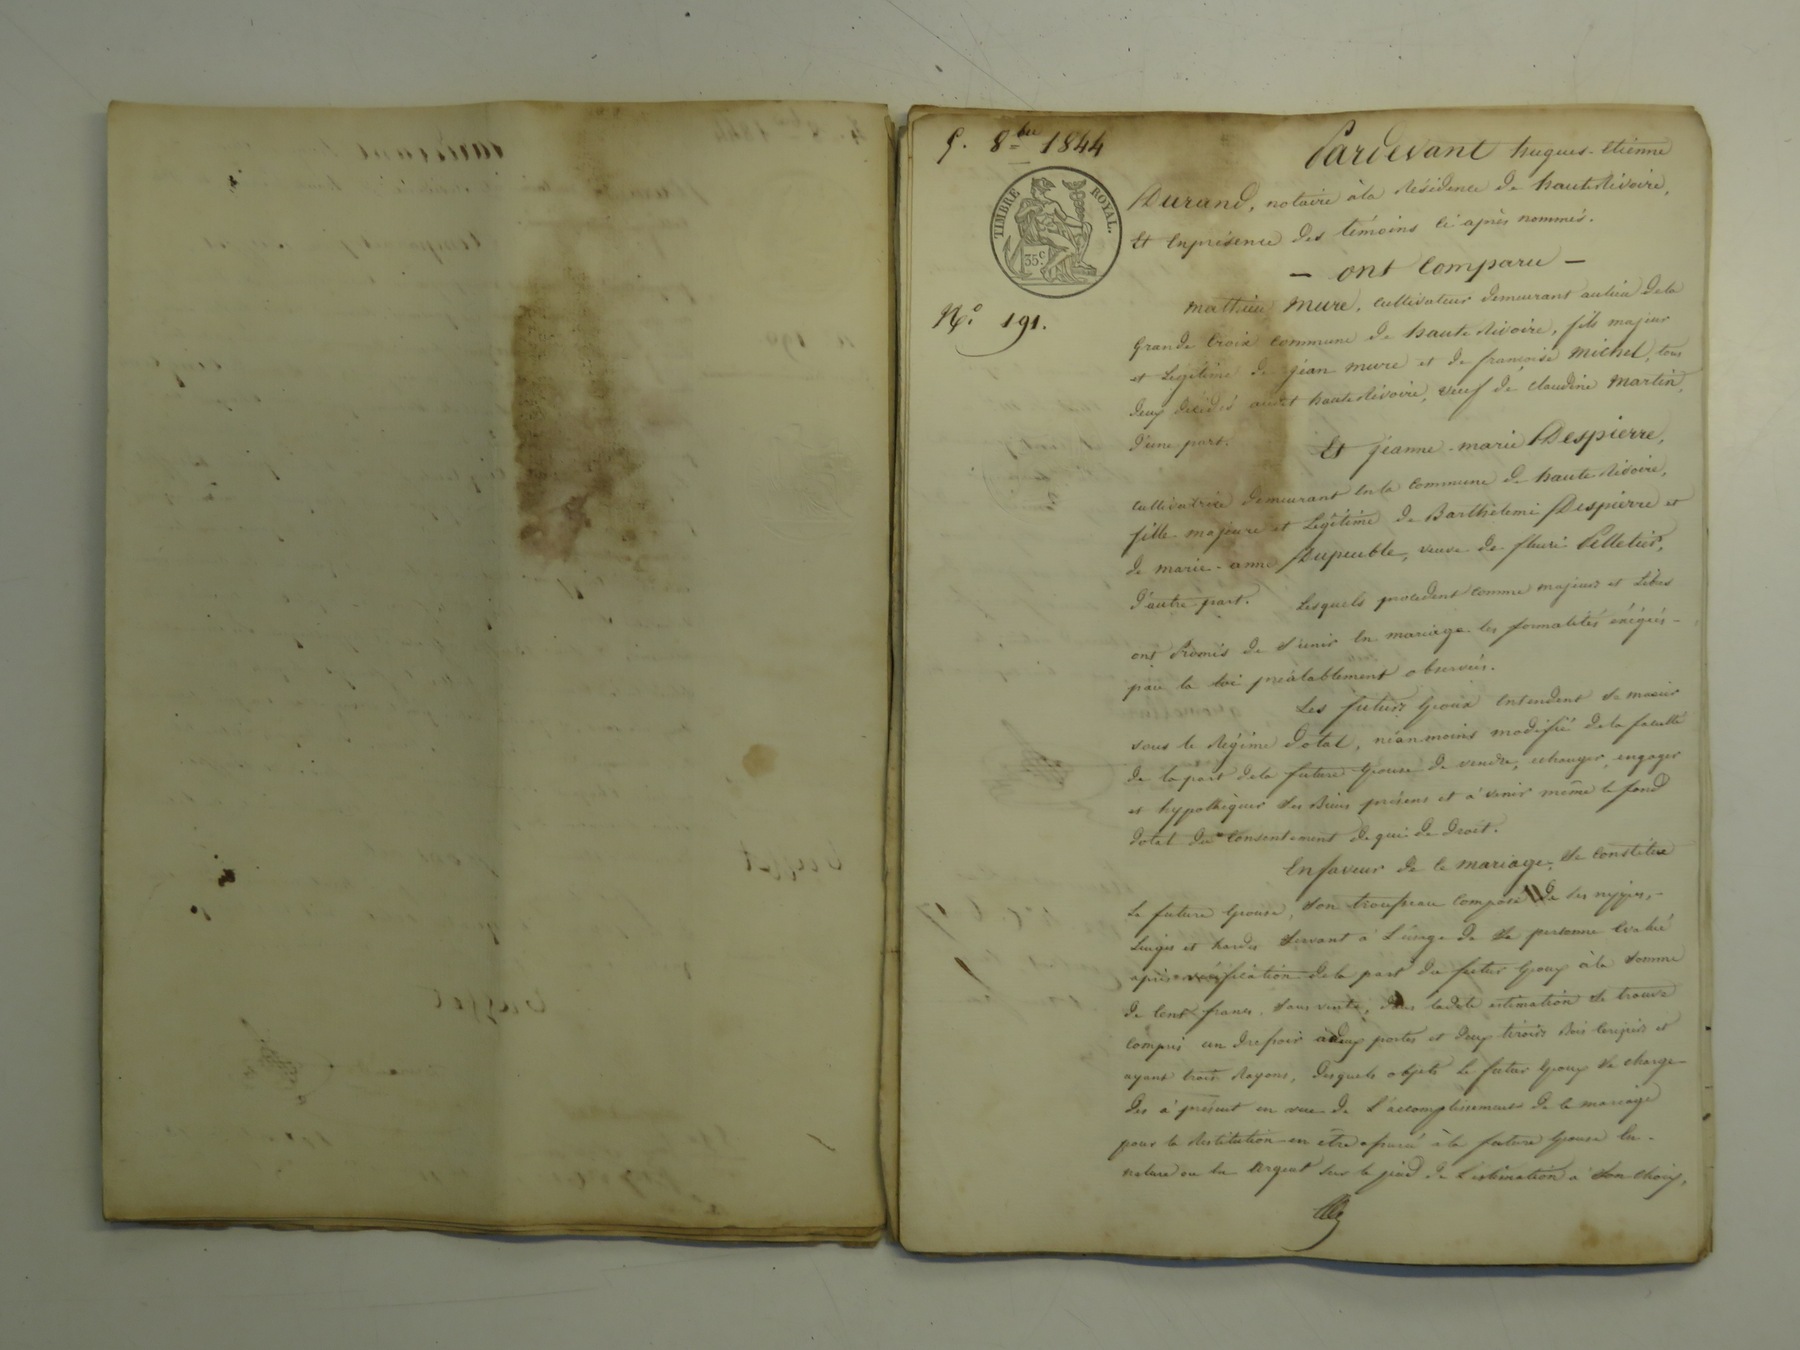 5. 8bre 1844
TIMBRE ROYAL.
35c.
No. 191.
Pardevant hugues-Etienne
Durand, notaire à la Résidence de hauterivoire,
Et en présence des témoins ci après nommés.
— ont Comparu —
Mathieu Mure, cultivateur demeurant au lieu de la
Grande Croix commune de haute Rivoire, fils majeur
et Légitime de jean mure et de françoise Michel, tous
deux décédés audit hauterivoire, veuf de claudine Martin,
d'une part. Et jeanne-marie Despierre,
cultivatrice demeurant en la commune de haute Rivoire,
fille majeure et Légitime de Barthélemi Despierre et
de marie-anne Dupeuble, veuve de fleuri Pelletier,
d'autre part. Lesquels procédent comme majeurs et Libres
ont Promis de s'unir en mariage les formalités éxigées
par la loi préalablement observées.
Les futurs Epoux entendent se marier
sous le Régime dotal, néanmoins modifié de la faculté
de la part de la future Epouse de vendre, échanger, engager
et hypothéquer ses Biens présens et à venir même le fond
dotal du Consentement de qui de droit.
En faveur de ce mariage, se constitue
la future Epouse, son trousseau composé de ses nippes,
Linges et hardes servant à L'usage de sa personne Evalué
après vérification de la part du futur Epoux à la somme
de Cent francs, sans vente, dans ladite estimation se trouve
compris un dressoir à deux portes et deux tiroirs Bois Cerisier et
ayant trois Rayons, desquels objets le futur Epoux se charge
dès à présent en vue de L'accomplissement de ce mariage
pour la Restitution en être assuré à la future Epouse En
nature ou En Argent sur le pied de L'estimation à son choix,